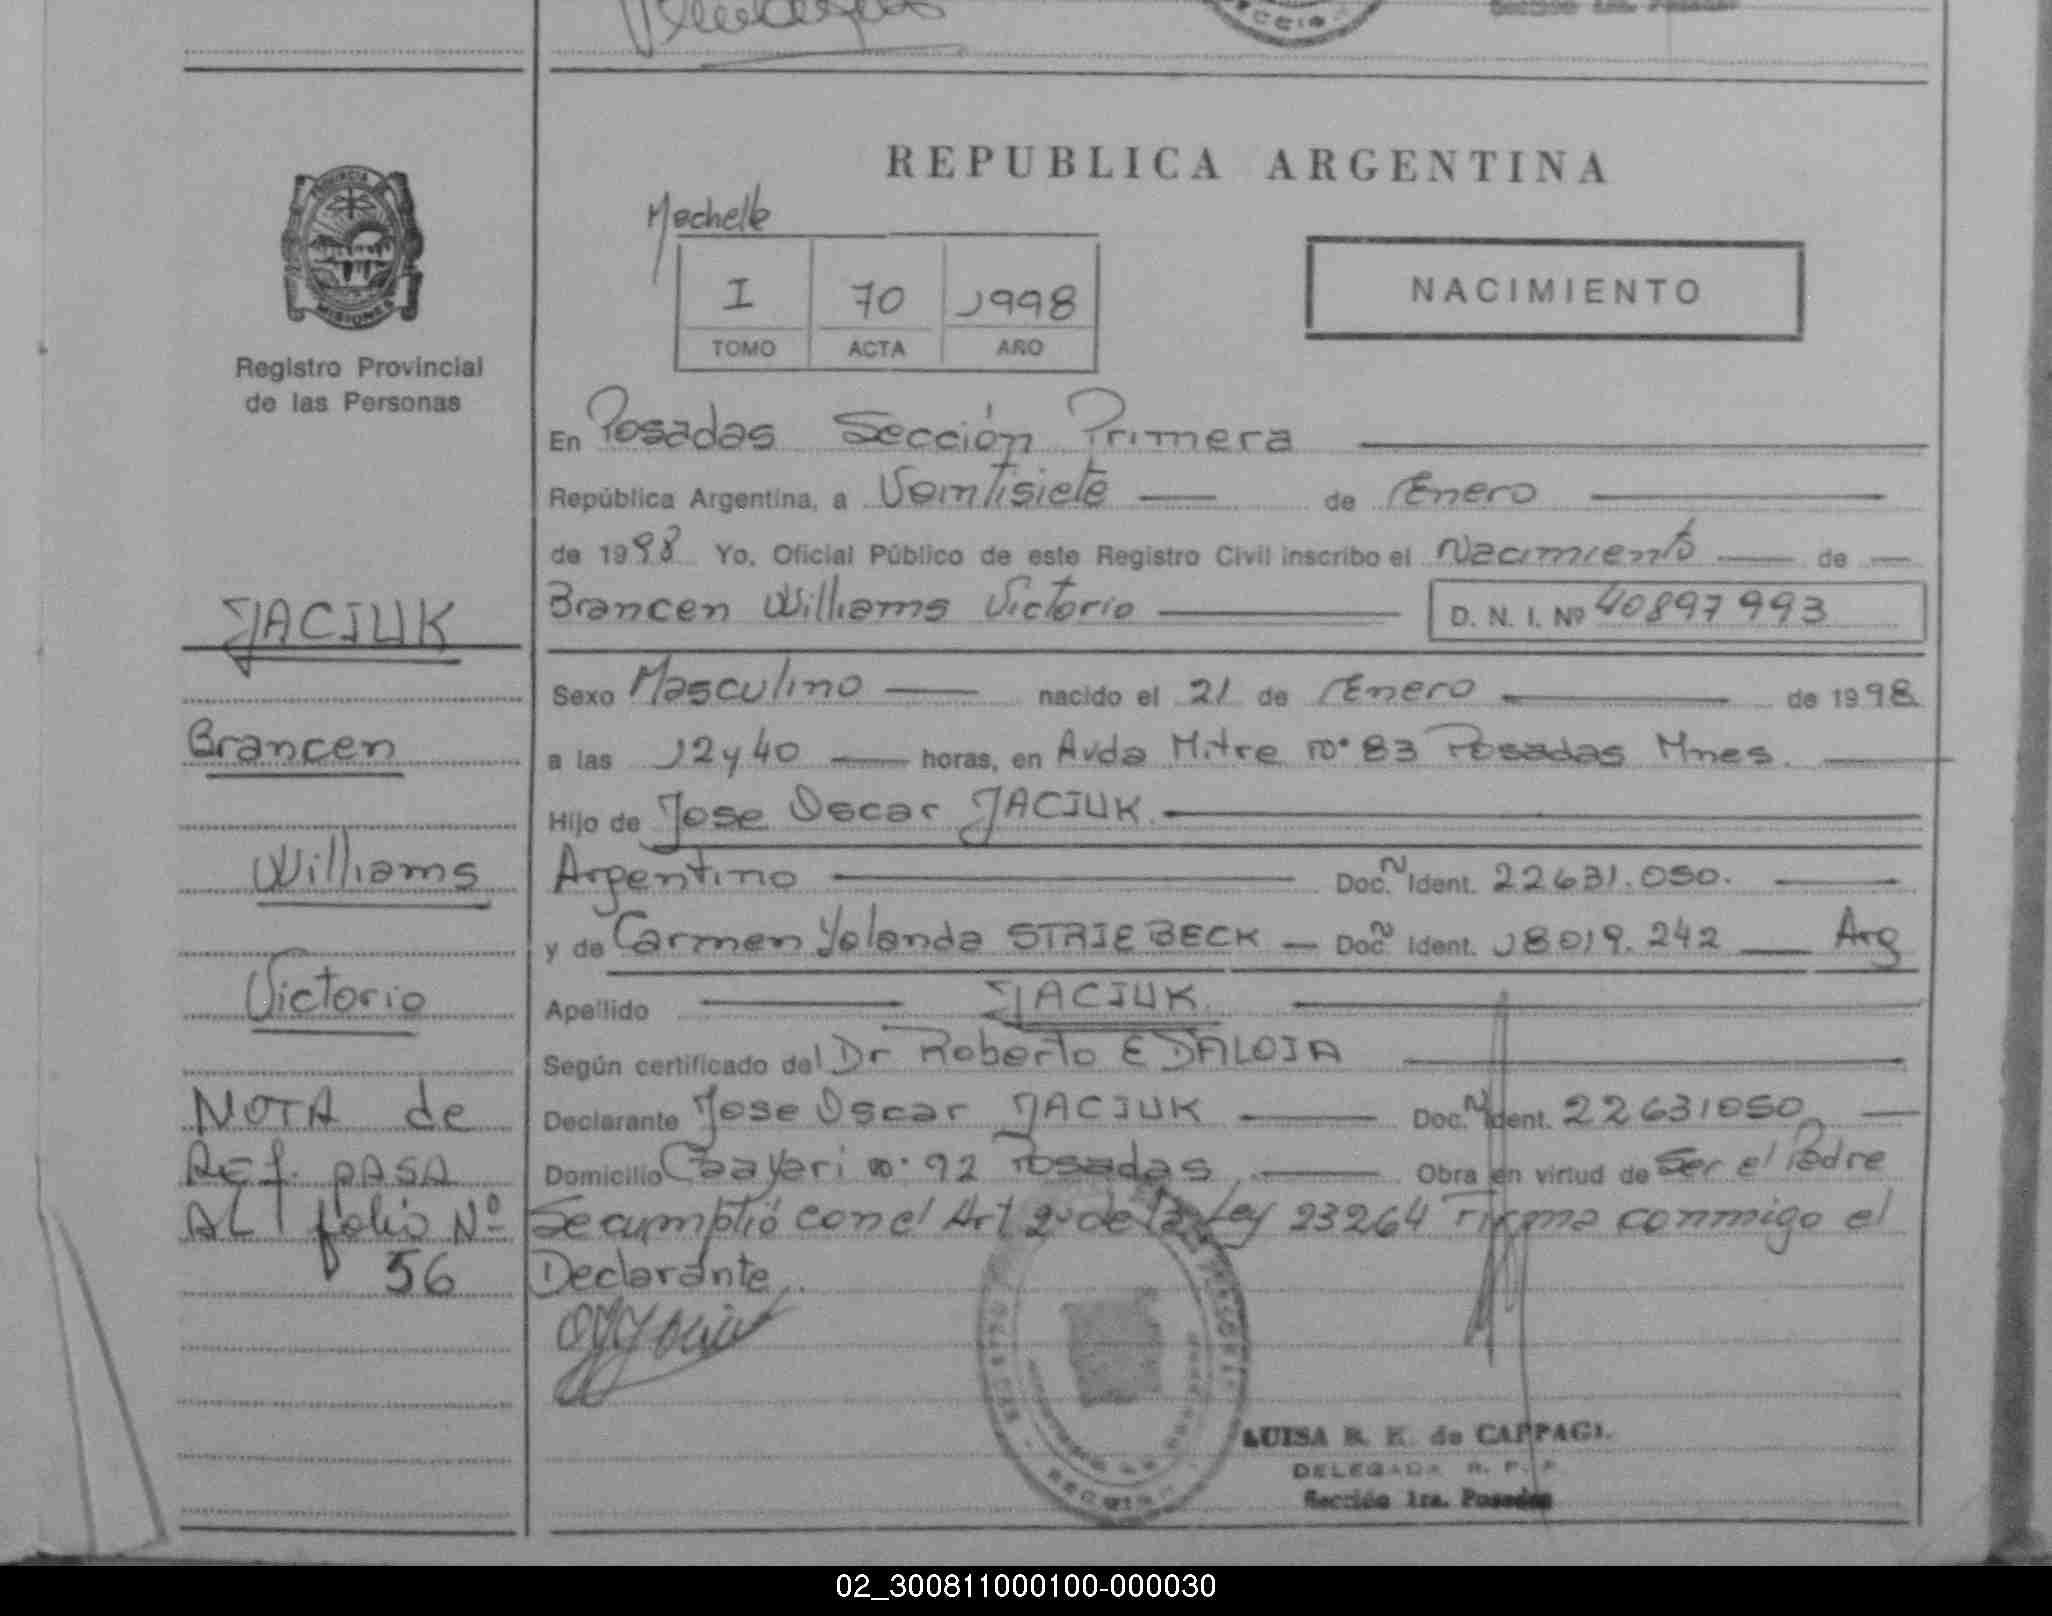 Sección 1ra. Posadas
REPUBLICA ARGENTINA
Mochelle
I 70 1998
TOMO ACTA AÑO
NACIMIENTO
PROVINCIA DE
MISIONES
Registro Provincial
de las Personas
En Posadas Sección Primera
República Argentina, a Veintisiete de Enero
de 1998 Yo, Oficial Público de este Registro Civil inscribo el Nacimiento de
Brancen Williams Victorio D. N. I. Nº 40897993
JACIUK
Sexo Masculino nacido el 21 de Enero de 1998
Brancen
a las 12 y 40 horas, en Avda Mitre nº 83 Posadas Mnes.
Hijo de Jose Oscar JACIUK
Williams
Argentino Doc. N Ident. 22631.050.
y de Carmen Yolanda STRIEBECK Doc. N Ident. 18019.242 Arg
Victorio
Apellido JACIUK
Según certificado del Dr Roberto E DALOIA
NOTA de
Declarante Jose Oscar JACIUK Doc. N Ident. 22631050
REf. pASA
Domicilio Caayari nº 92 Posadas Obra en virtud de Ser el Padre
AL folio Nº
Se cumplió con el Art 2º de la Ley 23264 Firma conmigo el
56
Declarante
LUISA R. K. de CAPPAGI.
DELEGADA R. P. P.
Sección 1ra. Posadas
02_300811000100-000030